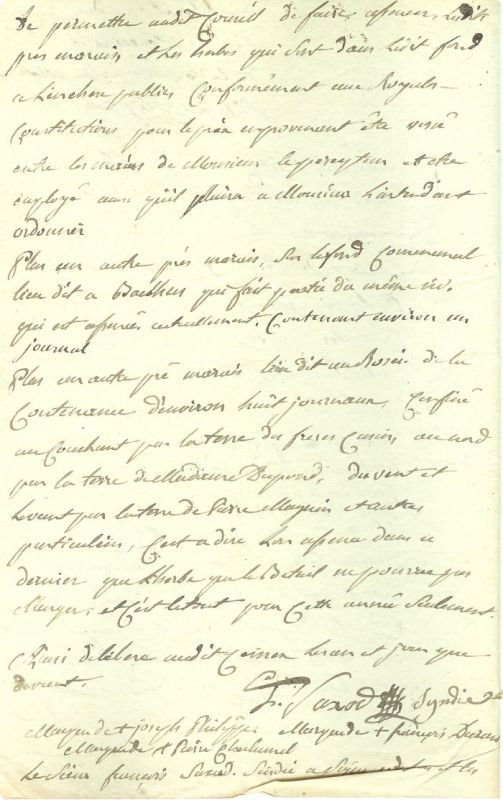 De permettre audit Conseill de faire affermer, lesdits
prés marais et les herbes qui sont dans ledit fond
a l'enchere publics Conformement aux Royals
Constitutions pour le prix en provenant être versé
entre les mains de Monsieur le percepteur et etre
employé ainsi qu'il plaira a Monsieur L'intendant
ordonner
Plus un autre prés marais, sur le fond Communal
lieu dit a qui fait partie du même nº.
qui est affermé actuellement. Contenant environ un
journal
Plus un autre pré marais lieu dit au Rosée de la
Contenance d'environ huit journaux, Confiné
au Couchant par la terre des freres au nord
par la terre de Madame Dupond, du vent et
levant par la terre de Pierre Maguin et autres
particuliers, C'est a dire L'on afferme dans ce
dernier que L'herbe que le Betail ne pourra pas
Manger, et C'est le tout pour Cette année Seulement.
Ainsi deliberé audit Les an et jour que
devant.
Saxod Syndic
Marque de + joseph Philippe Marque + françois
Marque de + Pierre
Le Sieur françois Saxod. Sindic a Signé